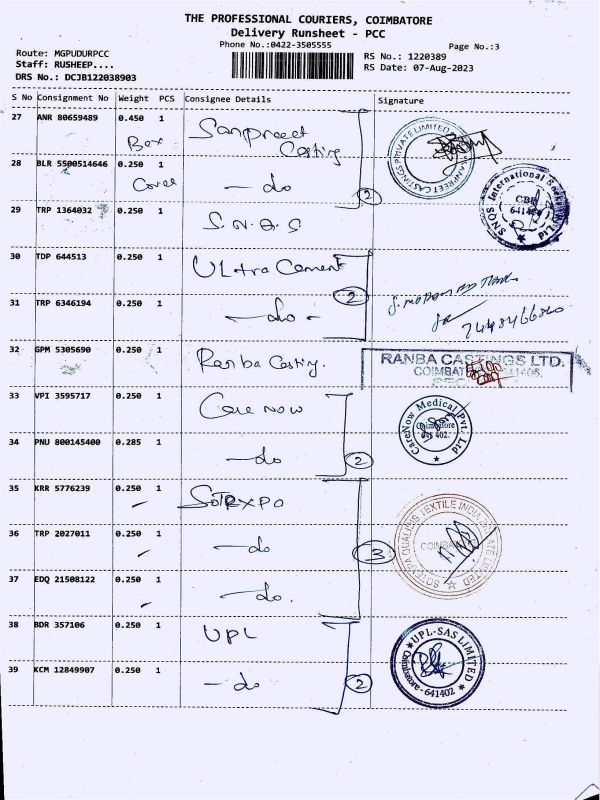 THE PROFESSIONAL COURIERS, COIMBATORE
Delivery Runsheet - PCC
Phone No.:0422-3505555
Page No.:3
Route: MGPUDURPCC
Staff: RUSHEEP....
DRS No.: DCJB122038903
RS No.: 1220389
RS Date: 07-Aug-2023
S No Consignment No Weight PCS Consignee Details Signature
27 ANR 80659489 0.450 1 Sanpreet Casting
Box
28 BLR 5500514646 0.250 1 - do
Cover
2
29 TRP 1364032 0.250 1 S.N.Q.S
SNQS International Socks Pvt Ltd
CBE
30 TDP 644513 0.250 1 ULtra Cement
2
31 TRP 6346194 0.250 1 - do -
32 GPM 5305690 0.250 1 Ranba Casting.
RANBA CASTINGS LTD.
33 VPI 3595717 0.250 1 Care now
CareNow Medical Pvt. Ltd
Coimbatore
641 402.
34 PNU 800145400 0.285 1 - do
2
35 KRR 5776239 0.250 1 SOTEXPA
SOTEXPA QUALIDIS TEXTILE INDIA PRIVATE LIMITED
36 TRP 2027011 0.250 1 - do
3
37 EDQ 21508122 0.250 1 - do.
38 BDR 357106 0.250 1 UPL
UPL-SAS LIMITED
Coimbatore - 641402
39 KCM 12849907 0.250 1 - do
2